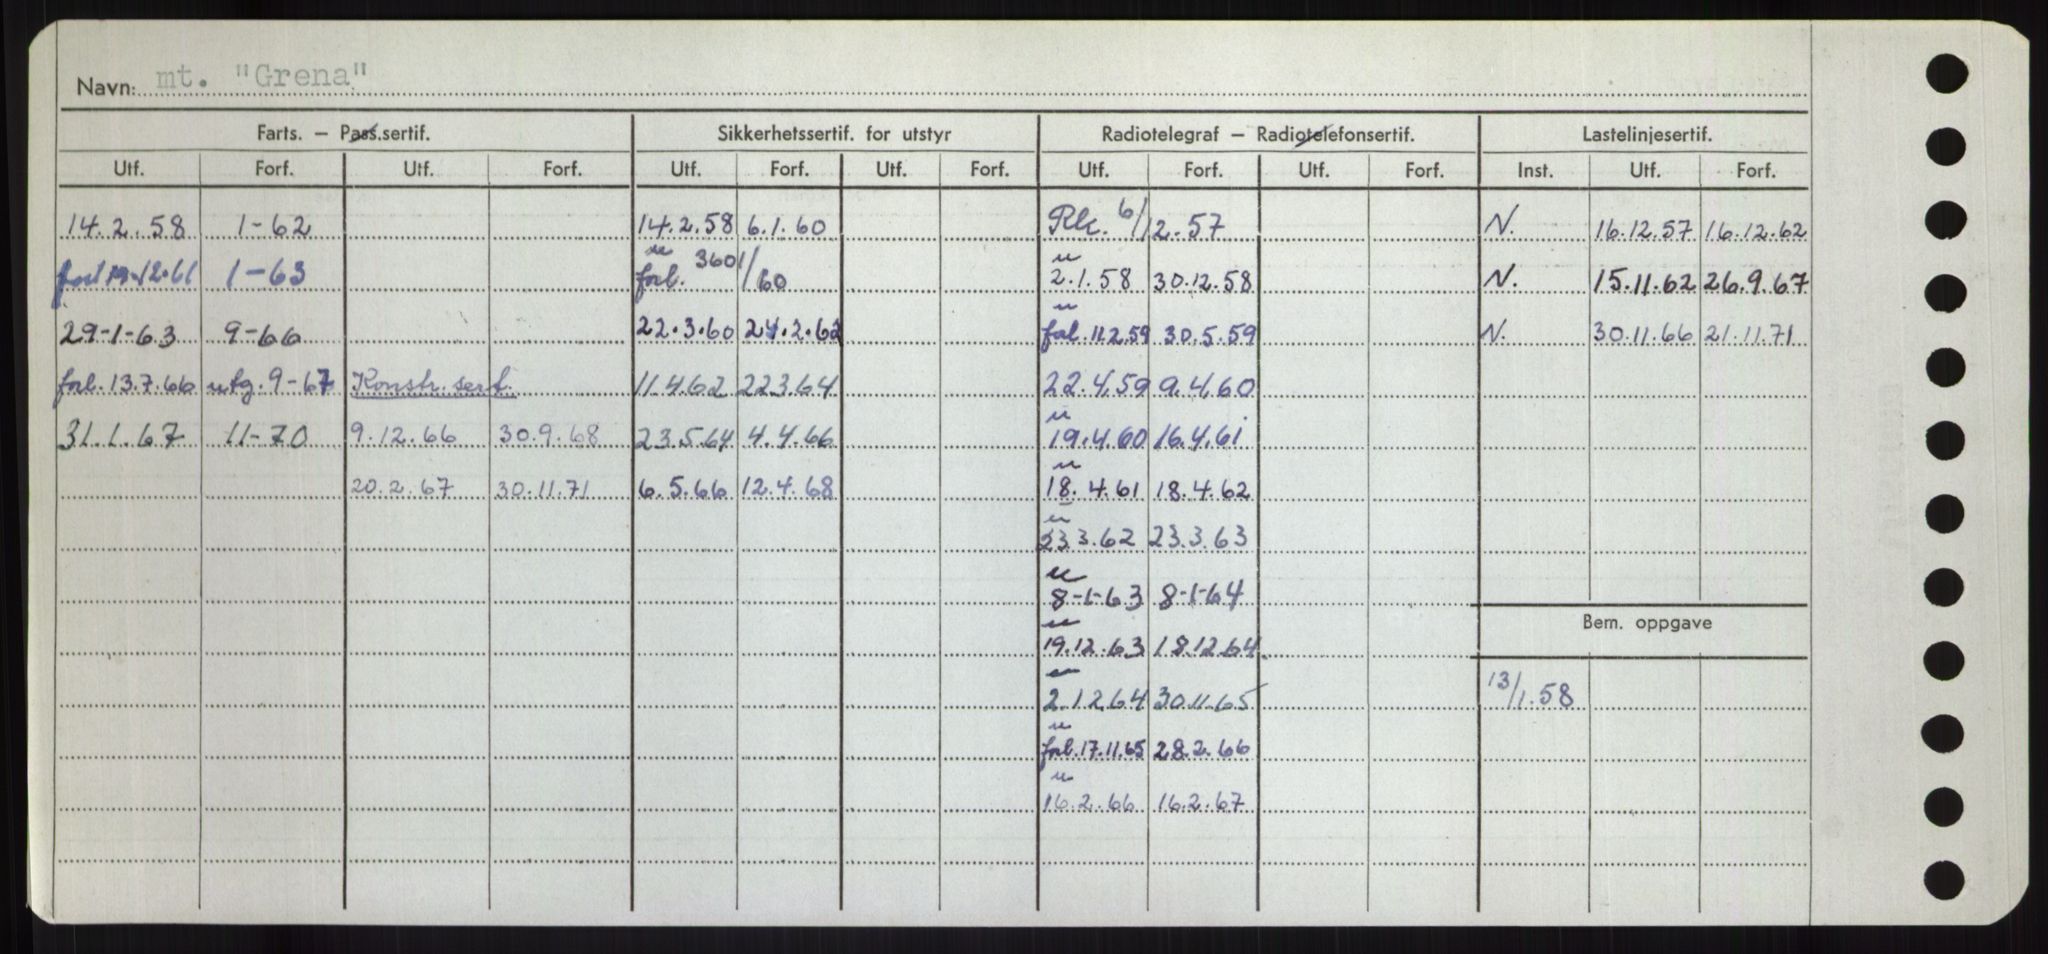 Navn: mt. "Grena"
Farts. – Pass.sertif. Sikkerhetssertif. for utstyr Radiotelegraf – Radiotelefonsertif. Lastelinjesertif.
Utf. Forf. Utf. Forf. Utf. Forf. Utf. Forf. Utf. Forf. Utf. Forf. Inst. Utf. Forf.
14.2.58 1-62 14.2.58 6.1.60 Rk. 6/12.57 N. 16.12.57 16.12.62
forl 19.12.61 1-63 forl. /60 2.1.58 30.12.58 N. 15.11.62 26.9.67
29-1-63 9-66 22.3.60 24.2.62 forl. 11.2.59 30.5.59 N. 30.11.66 21.11.71
forl. 13.7.66 utg. 9-67 Konstr. sert. 11.4.62 22.3.64 22.4.59 9.4.60
31.1.67 11-70 9.12.66 30.9.68 23.5.64 4.4.66 19.4.60 16.4.61
20.2.67 30.11.71 6.5.66 12.4.68 18.4.61 18.4.62
23.3.62 23.3.63
8-1-63 8-1-64
Bem. oppgave
19.12.63 18.12.64
2.12.64 30.11.65 13/1.58
forl. 17.11.65 28.2.66
16.2.66 16.2.67